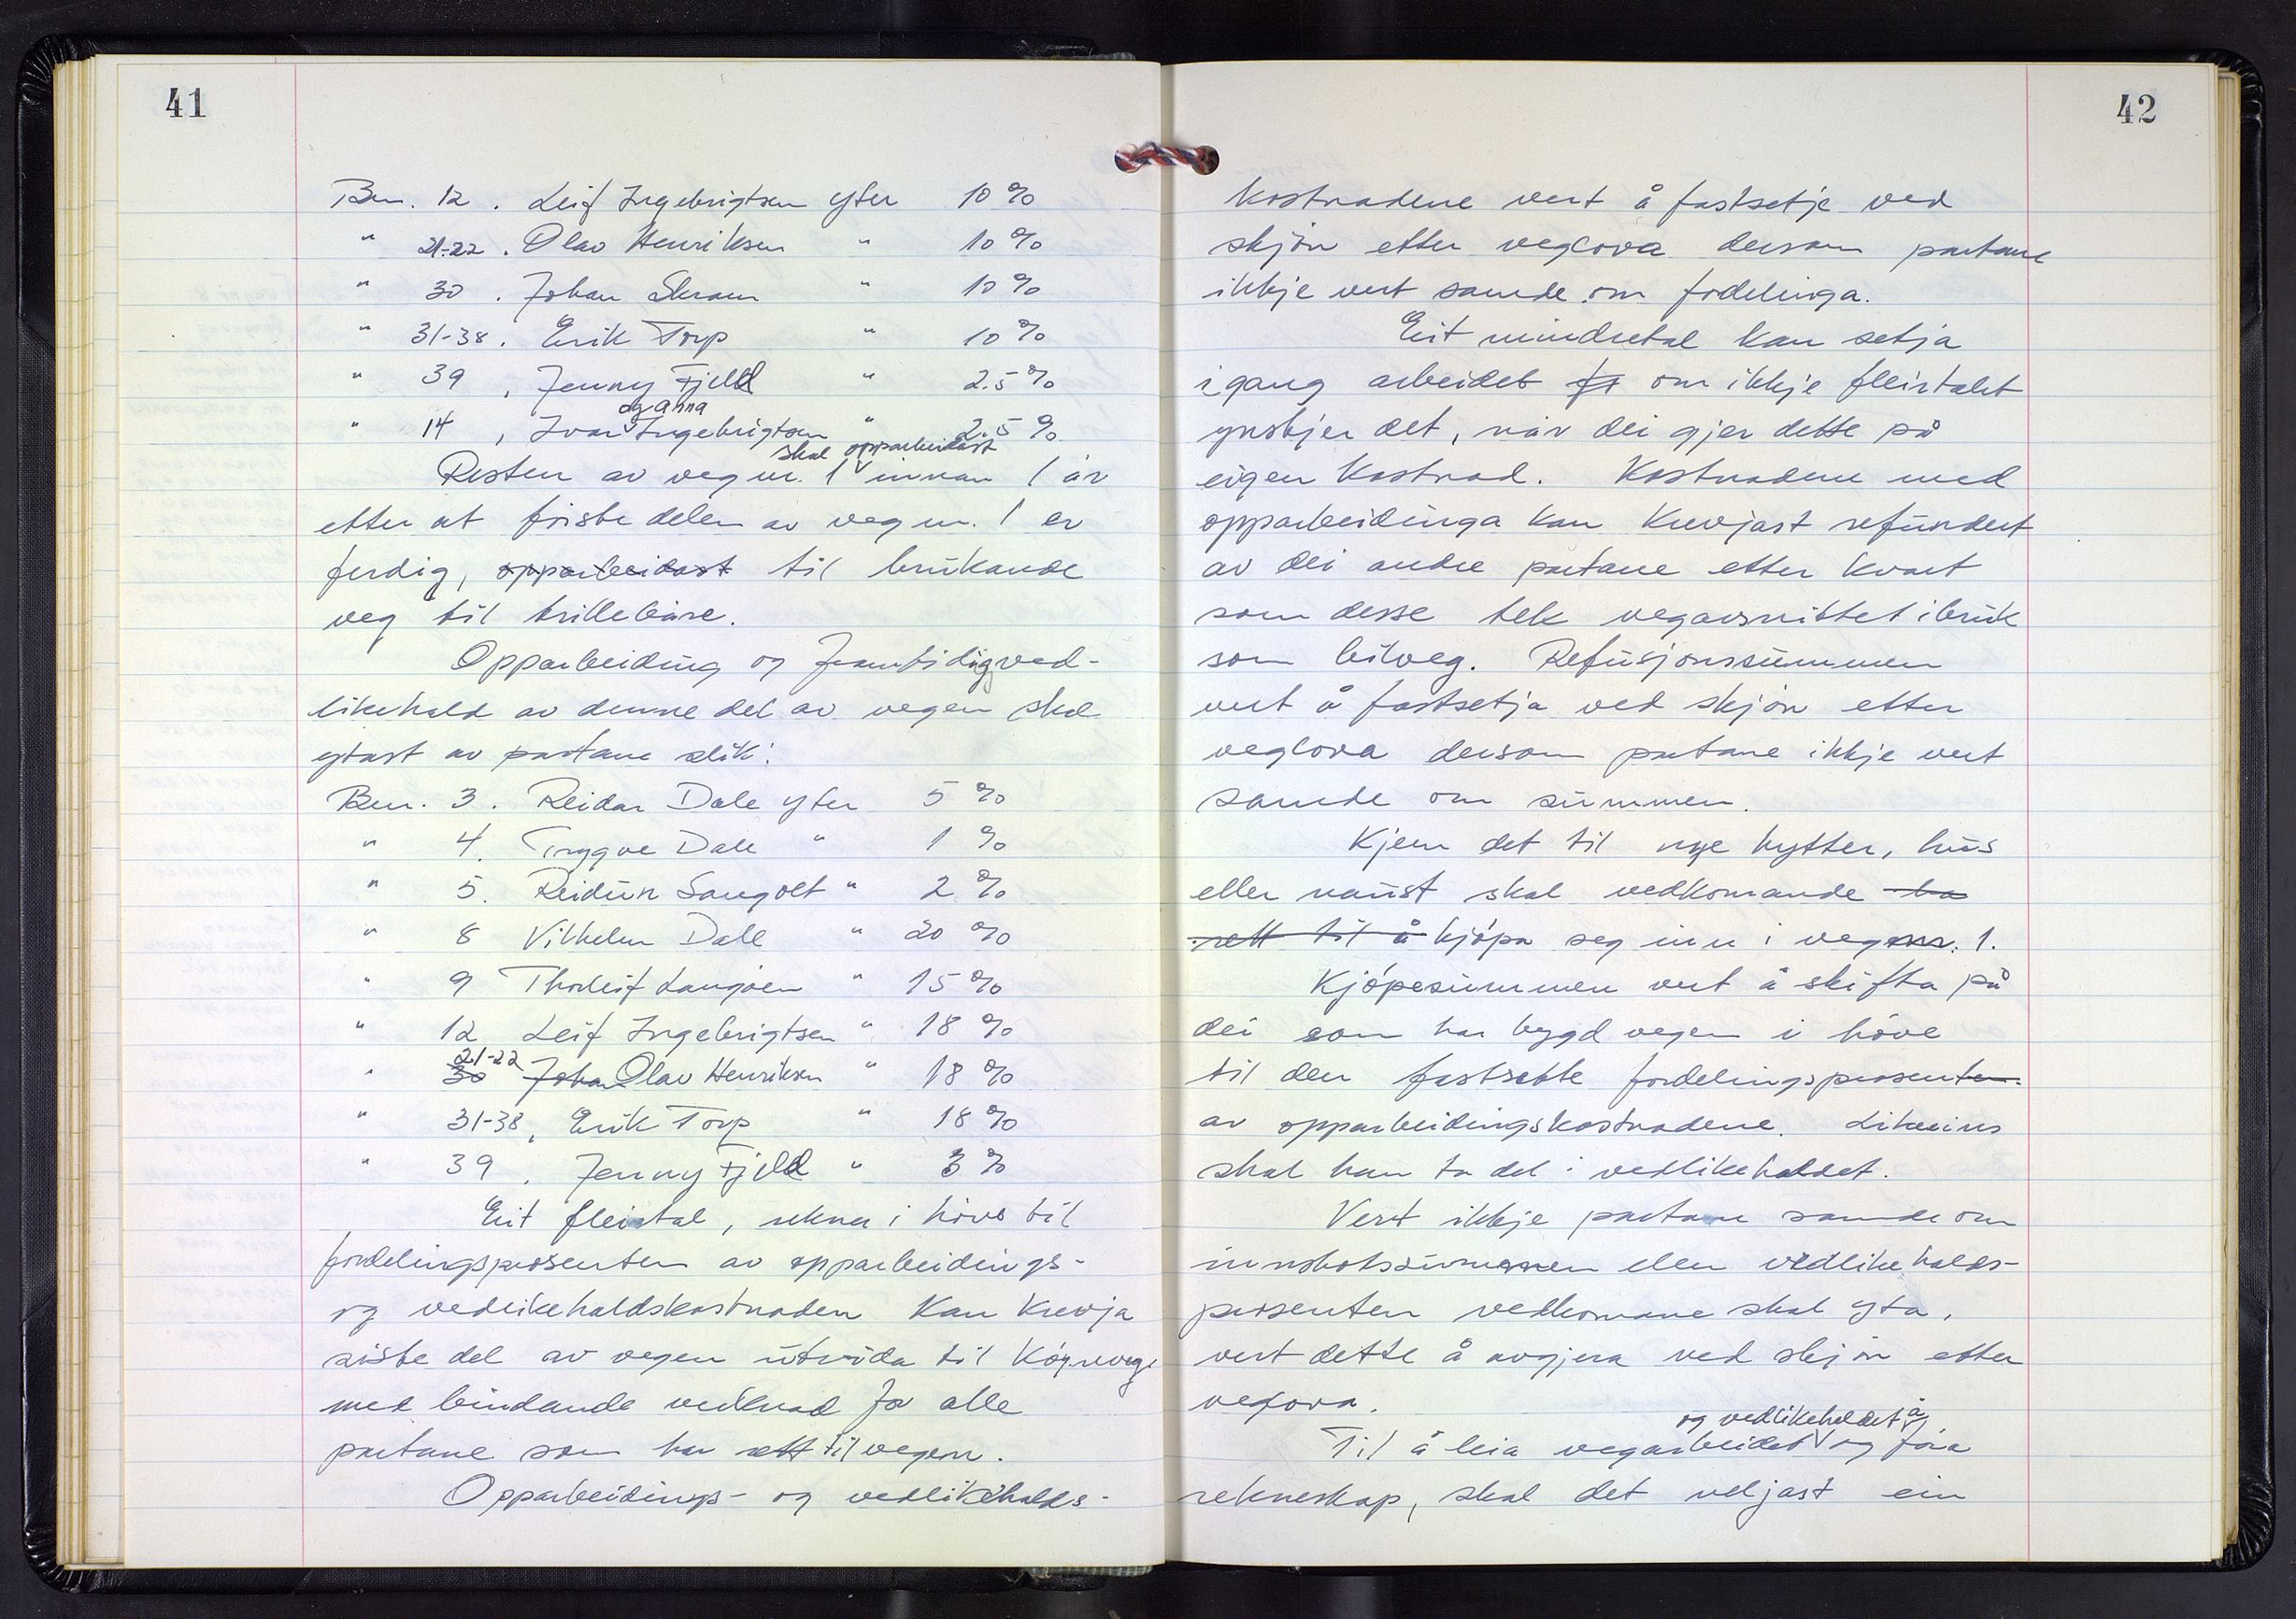 41
Bnr. 12. Leif Ingebrigtsen yter 10 %
" 21-22. Olav Henriksen " 10 %
" 30. Johan Skram " 10 %
" 31-38. Erik Torp " 10 %
" 39, Jenny Fjeld " 2.5 %
og Anna
" 14, Ivar Ingebrigtsen " 2.5 %
skal opparbeidast
Resten av veg nr. 1 innan 1 år
etter at fórste delen av veg nr. 1 er
ferdig, opparbeidast til brukande
veg til trillebåre.
Opparbeiding og framtidig ved-
likehald av denne del av vegen skal
ytast av partane slik:
Bnr. 3. Reidar Dale yter 5 %
" 4. Trygve Dale " 1 %
" 5. Reidun Sangolt " 2 %
" 8 Vilhelm Dale " 20 %
" 9 Thorleif Langøen " 15 %
" 12 Leif Ingebrigtsen " 18 %
21-22
" 30 Johan Olav Henriksen " 18 %
" 31-38, Erik Torp " 18 %
" 39. Jenny Fjeld " 3 %
Eit fleirtal, rekna i hóve til
fordelingsprosenten av opparbeidings-
og vedlikehaldskostnaden kan krevja
siste del av vegen utvida til kóyreveg
med bindande verknad for alle
partane som har rett til vegen.
Opparbeidings- og vedlikehalds-
42
kostnadene vert å fastsetje ved
skjón etter veglova dersom partane
ikkje vert samde om fordelinga.
Eit mindretal kan setja
i gang arbeidet om ikkje fleirtalet
ynskjer det, når dei gjer dette på
eigen kostnad. Kostnadene med
opparbeidinga kan krevjast refundert
av dei andre partane etter kvart
som desse tek vegavsnittet i bruk
som bilveg. Refusjonssummen
vert å fastsetja ved skjón etter
veglova dersom partane ikkje vert
samde om summen.
Kjem det til nye hytter, hus
eller naust skal vedkomande ha
rett til å kjópa seg inn i veg nr. 1.
Kjópesummen vert å skifta på
dei som har bygd vegen i hóve
til den fastsette fordelingsprosenten
av opparbeidingskostnadene. Likeeins
skal han ta del i vedlikehaldet.
Vert ikkje partane samde om
innskotssummen eller vedlikehalds-
prosenten vedkomane skal yta,
vert dette å avgjera ved skjón etter
veglova.
og vedlikehaldet å
Til å leia vegarbeidet og fóra
rekneskap, skal det veljast ein